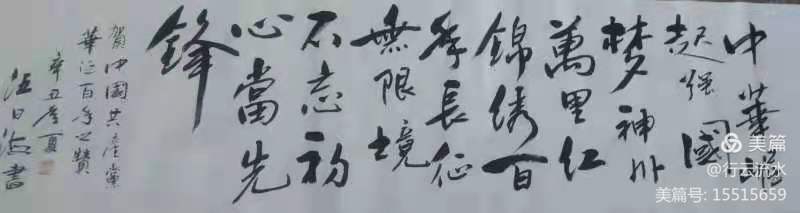 中華
起强國
梦神州
萬里红
錦绣百
年長征
無限境
不忘初
心當先
鋒
賀中國共產黨
華诞百年之赞
辛丑夏
書
美篇
@行云流水
美篇号: 15515659